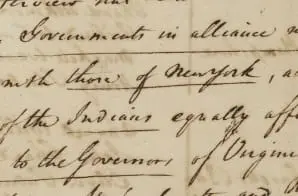 Governments in alliance
with those of New York, a
of the Indians equally aff
to the Governors of Virgin